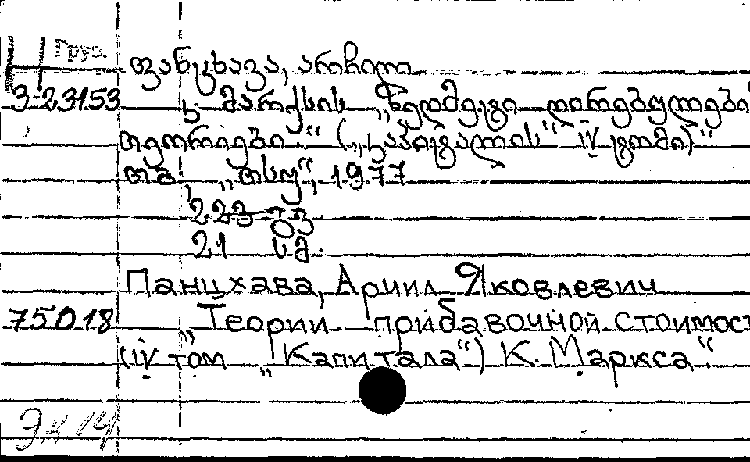 Груз.
ფანცხავა, არჩილ
3-23153 კ. მარქსის „ზედმეტი ღირებულების
თეორიები“ („კაპიტალის“ IV ტომი)“
თბ., „თსუ“, 1977
223 გვ.
21 სმ.
Панцхава, Арчил Яковлевич
75018 „Теории прибавочной стоимост
(IV том „Капитала“) К. Маркса“